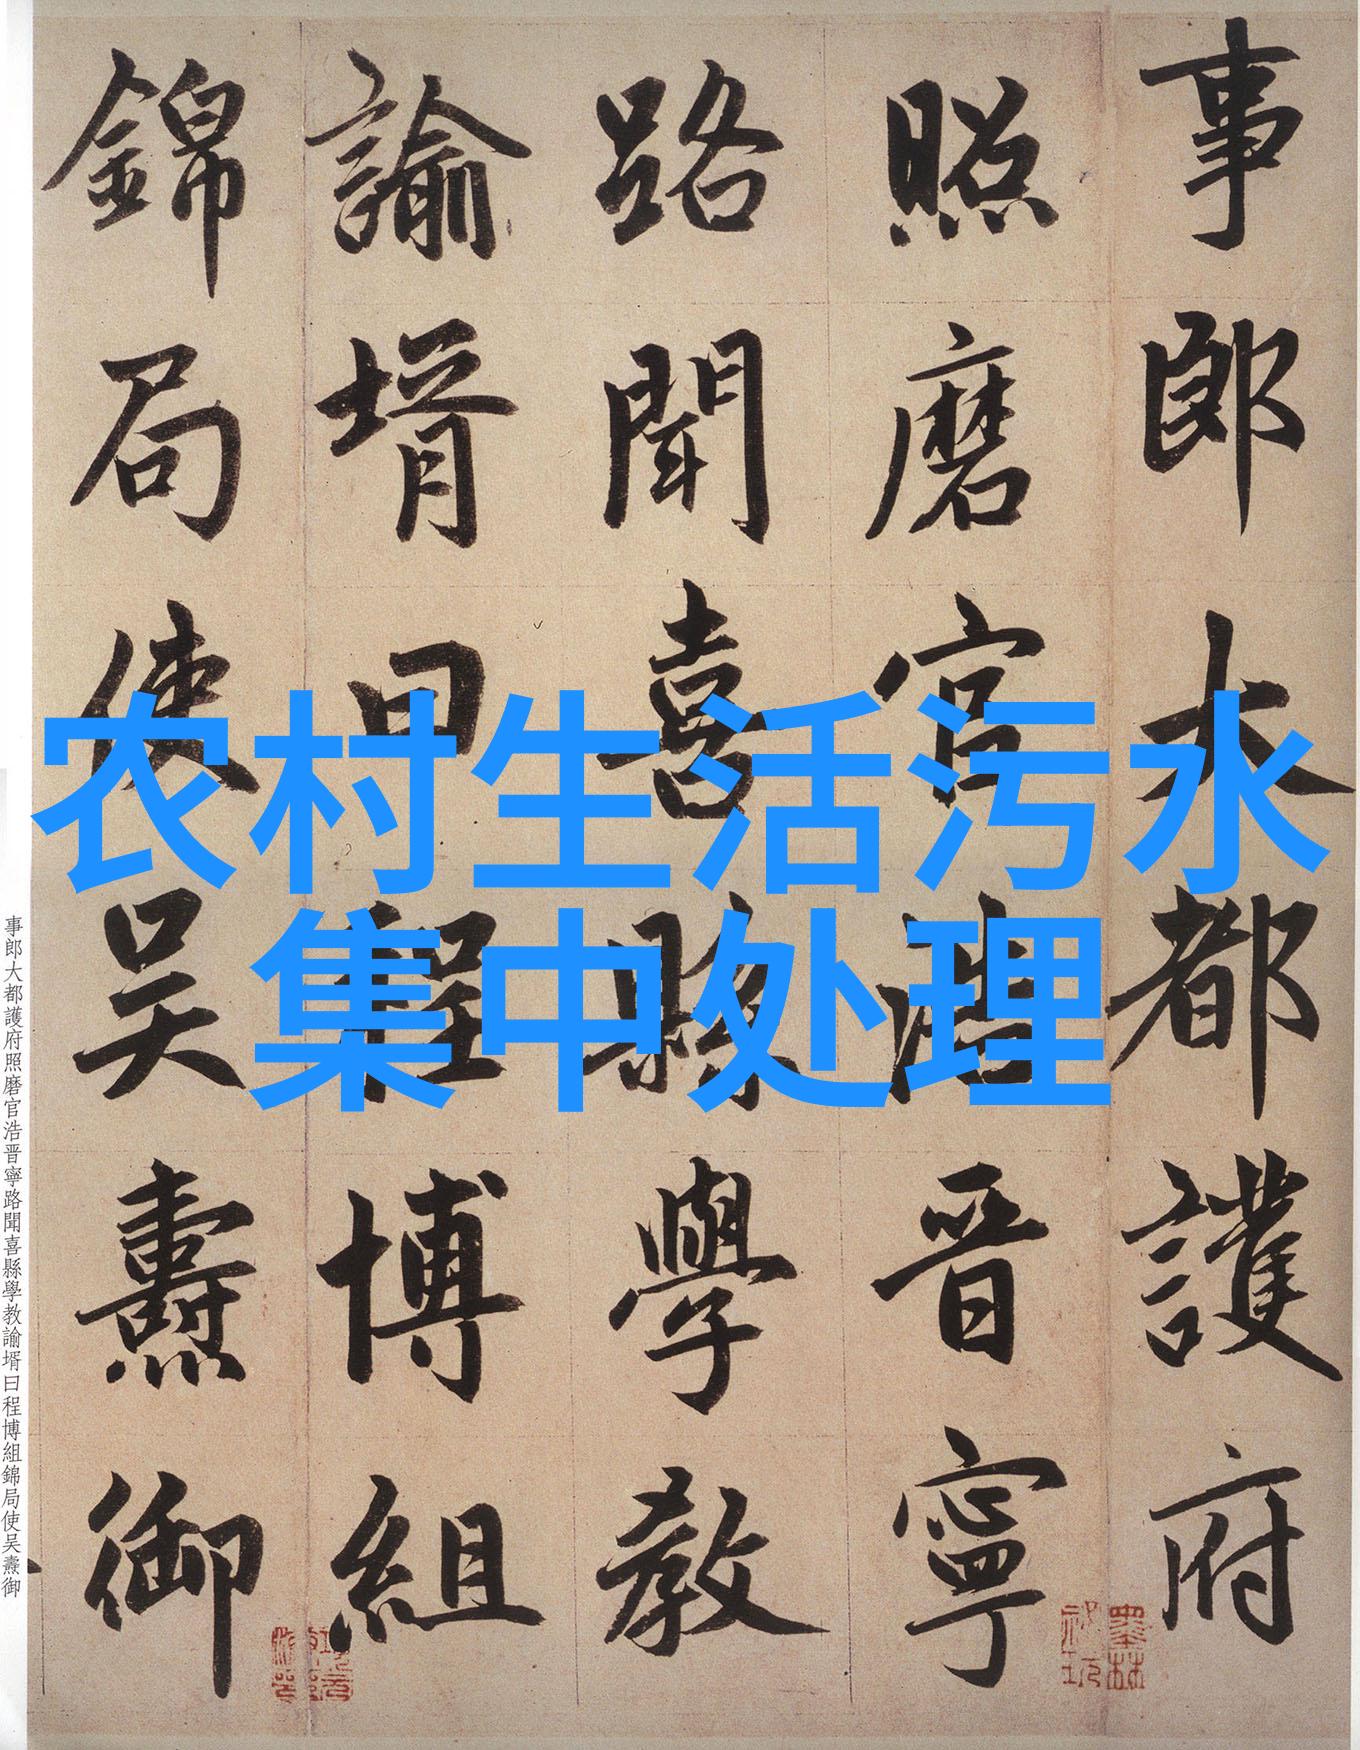 農村生活污水
集中处理
事郎大都護府
照磨官浩晋寧
路聞喜縣學教
諭壻曰程博組
錦局使吴燾御
事郎大都護府照磨官浩晋寧路聞喜縣學教諭壻曰程博組錦局使吴燾御